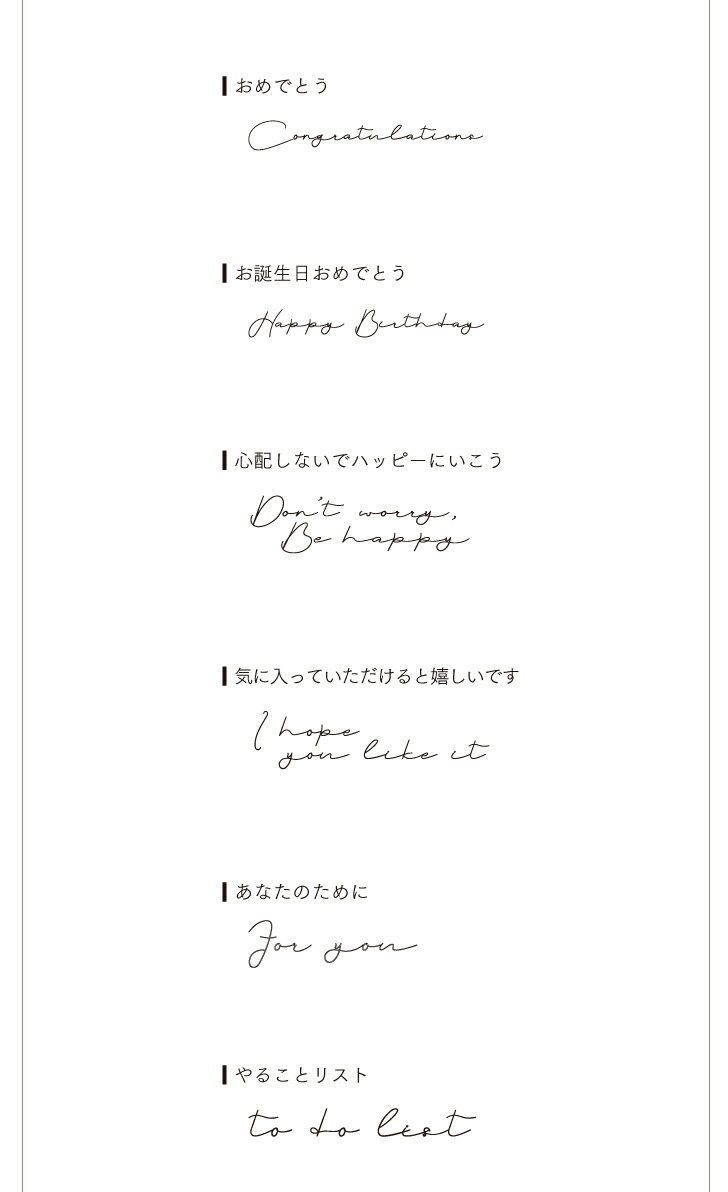 おめでとう
Congratulations
お誕生日おめでとう
Happy Birthday
心配しないでハッピーにいこう
Don't worry,
Be happy
気に入っていただけると嬉しいです
I hope
you like it
あなたのために
For you
やることリスト
to do list